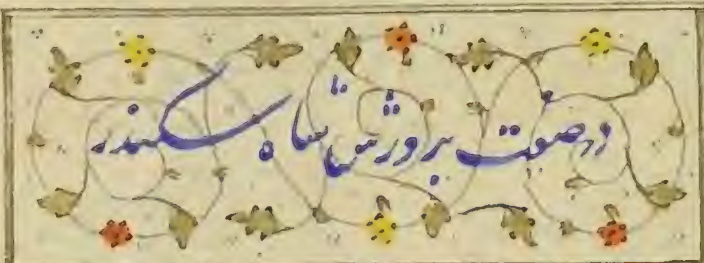 در صفت برورش شاه سکندر